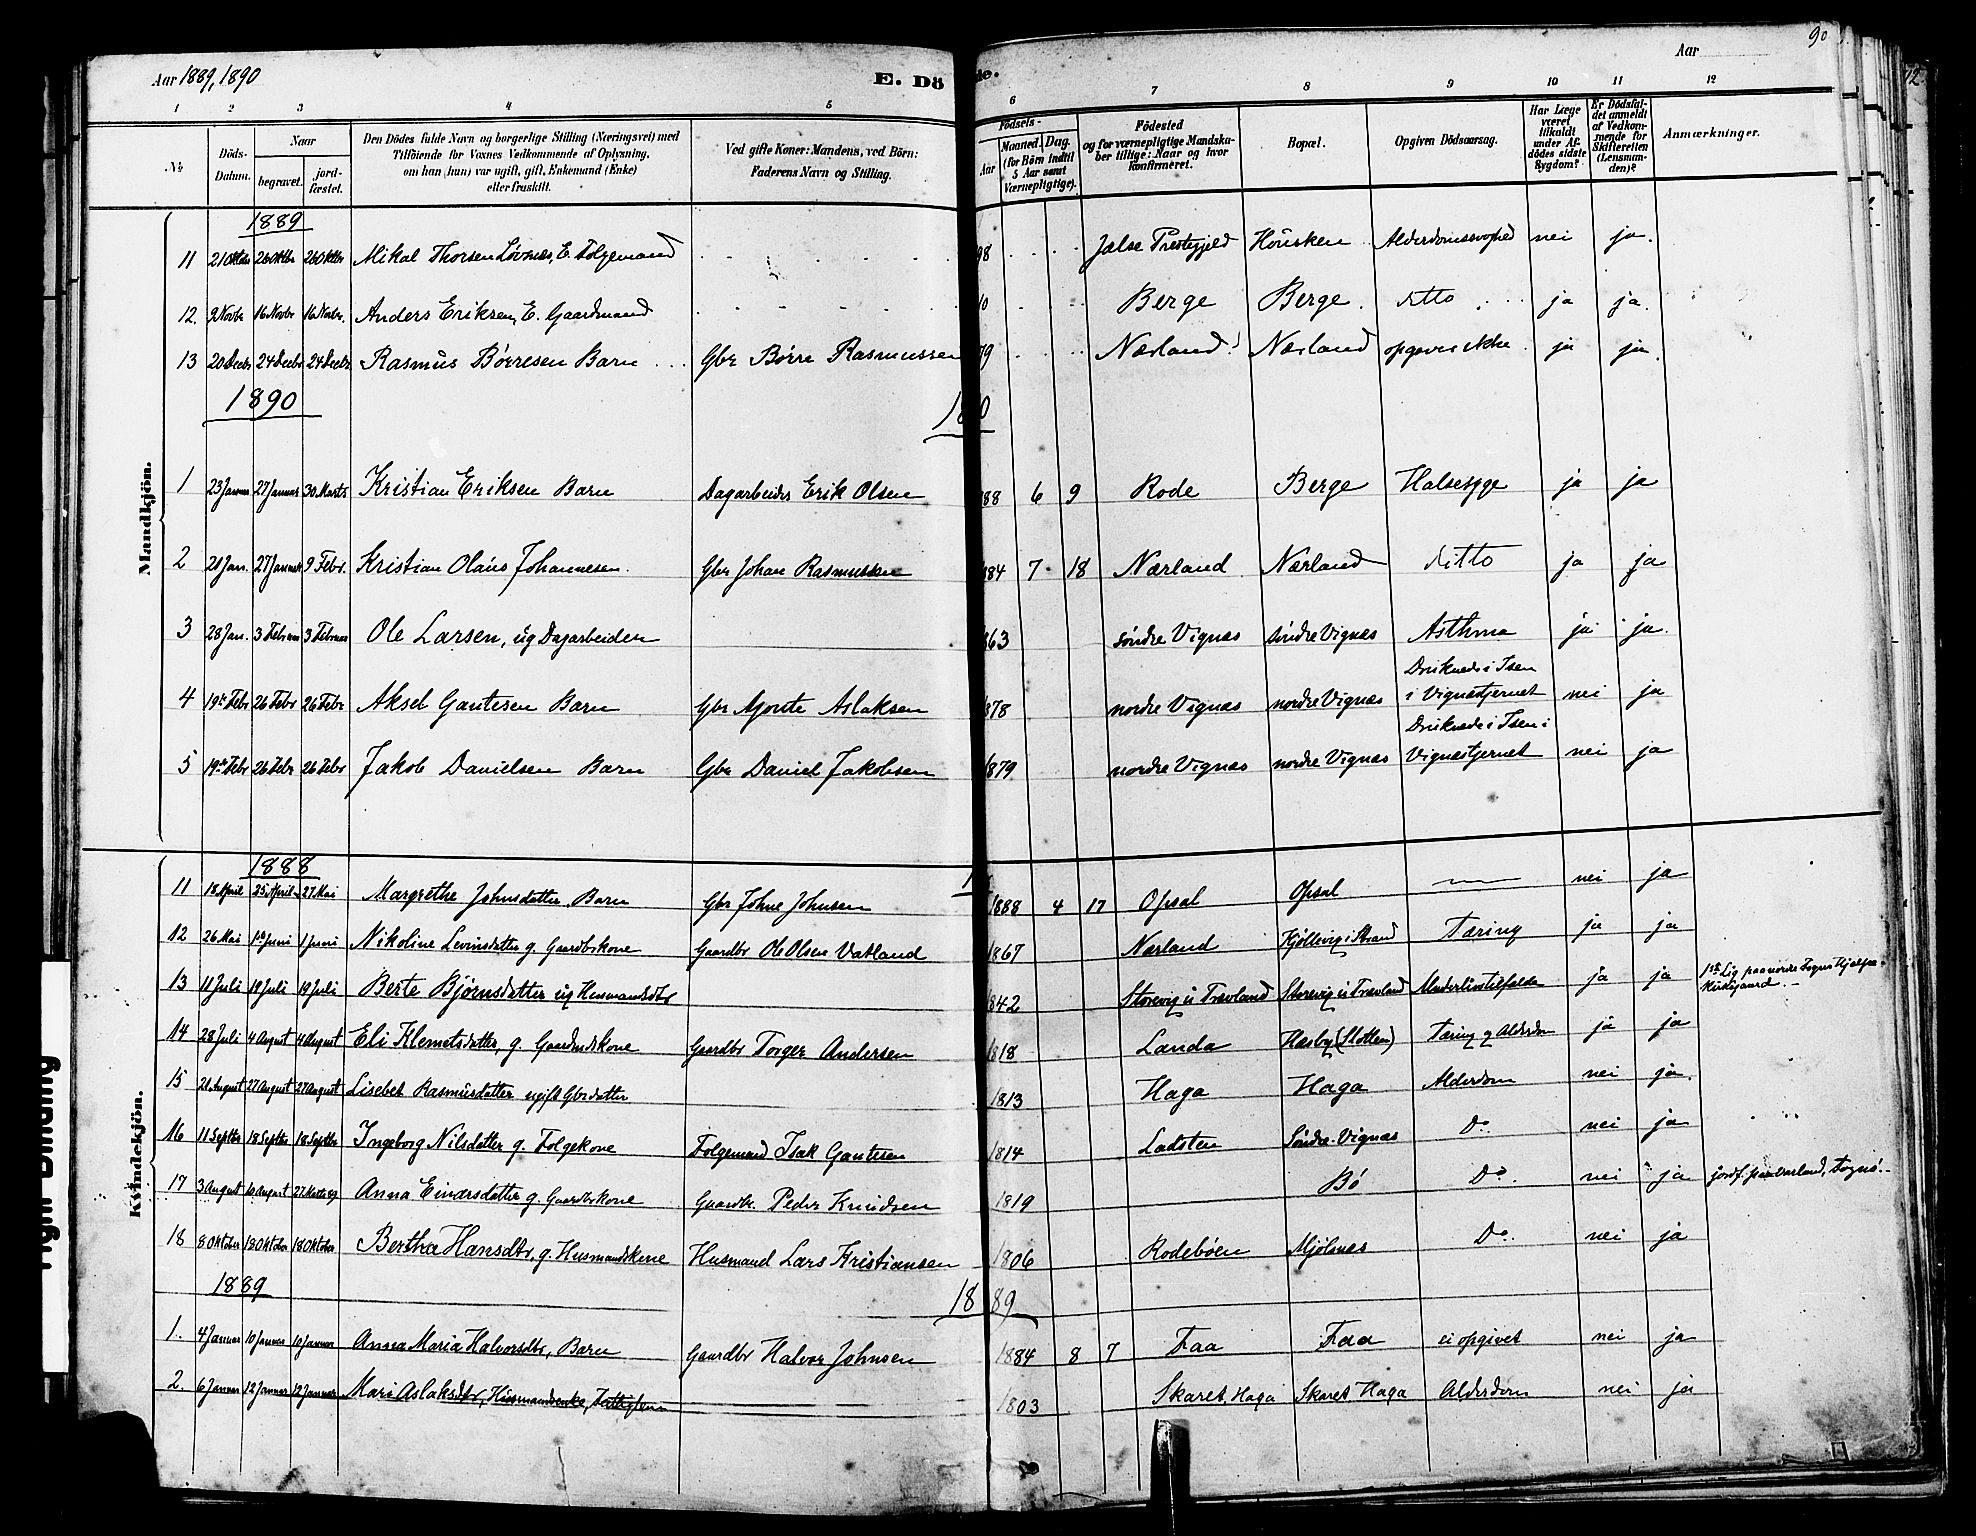 90
Aar 1889, 1890
E. Dö de.
Aar
1 2 3 4 5 6 7 8 9 10 11 12
No
Döds-Datum.
Naar
begravet.
jord-fæstet.
Den Dödes fulde Navn og borgerlige Stilling (Næringsvei) med
Tilföiende for Voxnes Vedkommende af Oplysning,
om han (hun) var ugift, gift, Enkemand (Enke)
eller fraskilt.
Ved gifte Koner: Mandens, ved Börn:
Faderens Navn og Stilling.
Födsels-
Aar
Maaned. Dag.
(for Börn indtil
5 Aar samt
Værnepligtige).
Födested
og for værnepligtige Mandska-
ber tillige: Naar og hvor
konfirmeret.
Bopæl.
Opgiven Dödsaarsag.
Har Læge
været
tilkaldt
under Af-
dödes sidste
Sygdom?
Er Dödsfal-
det anmeldt
af Vedkom-
mende for
Skifteretten
(Lensman-
den)?
Anmærkninger.
Mandkjön.
1889
11 21 Oktbr 26 Oktbr 26 Oktbr Mikal Thorsen Løvnæs, E. Folgemand 98 Jælse Prestegjeld Housken Alderdomssvaghed nei ja.
12. 9 Novbr 16 Novbr 16 Novbr. Anders Eriksen, E. Gaardmand 10 Berge Berge. ditto ja ja.
13 20 Decbr 24 Decbr 24 Decbr Rasmus Børresen Barn Gbr Børre Rasmussen 79 Nærland Nærland opgives ikke ja ja.
1890 18 0
1 23 Januar 27 Januar 30 Marts Kristian Eriksen Barn Dagarbeider Erik Olsen 88 6 9 Rode Berge Halsesyge ja ja
2 21 Jan. 27 Januar 9 Febr. Kristian Olaus Johannesen. Gbr Johan Rasmussen 84 7 18 Nærland Nærland ditto ja ja
3 28 Jan. 3 Februar 3 Februar Ole Larsen, ug Dagarbeider 63 søndre Vignæs søndre Vignæs Asthma ja ja.
4 19de Febr 26 Febr 26 Febr Aksel Gautesen Barn Gbr Gjoute Aslaksen 878 nordre Vignæs nordre Vignæs Druknede i Isen
i Vignæstjernet nei ja
5 19de Febr 26 Febr 26 Febr Jakob Danielsen Barn Gbr Daniel Jakobsen 879 nordre Vignæs nordre Vignæs Druknede i Isen i
Vignæstjernet nei ja
Kvindekjön.
1888
11 18 April 25 April 27 Mai Margrethe Johnsdatter Barn Gbr Johne Johnsen 1888 4 17 Opsal Opsal nei ja
12 26 Mai 1ste Juni 1 Juni Nikoline Levinsdatter g. Gaardbrkone Gaardbr Ole Olsen Vatland 1867 Nærland Kjøllevig i Strand Tæring ja ja
13 11 Juli 19 Juli 19 Juli Berte Bjørnsdatter ug Husmandsdtr 842 Storevig u Trævland Storevig u Trævland Underlivstilfælde ja ja 1ste Lig paa nordre Sogns Hjelpe-
kirkegaard.
14 28 Juli 4 August 4 August Eli Klemetsdatter, g. Gaardmdskone Gaardbr Torger Andersen 1818 Landa Hæsby (Slotten) Tæring og Alderdom ja ja
15 21 August 27 August 27 August Lisebet Rasmusdatter ugift Gbrdatter 1813 Haga Haga Alderdom nei ja.
16 11 Septbr 18 Septbr 18 Septbr Ingeborg Nilsdatter g. Folgekone Folgemand Isak Gautesen 1814 Ladsten Søndre Vignæs Do nei ja
17 3 August 10 August Anna Einarsdatter g. Gaardbrkone Gaardbr. Peder Knudsen 1819 Bø Do. nei ja
18 8 Oktober 18 Oktober 18 Oktober Bertha Hansdtr, g. Husmandskone Husmand Lars Kristiansen 1806 Rodebøen Mjølsnes Do. nei ja
1889 18 89
1. 4 Januar 10 Januar 10 Januar Anna Maria Halvorsdtr, Barn Gaardbr Halvor Johnsen 1884 8 7 Faa Faa ei opgivet nei ja
2. 6 Januar 12 Januar 12 Januar Mari Aslaksdtr, Husmandsenke, Fattiglem 1803 Skaret, Haga Skaret, Haga Alderdom nei ja